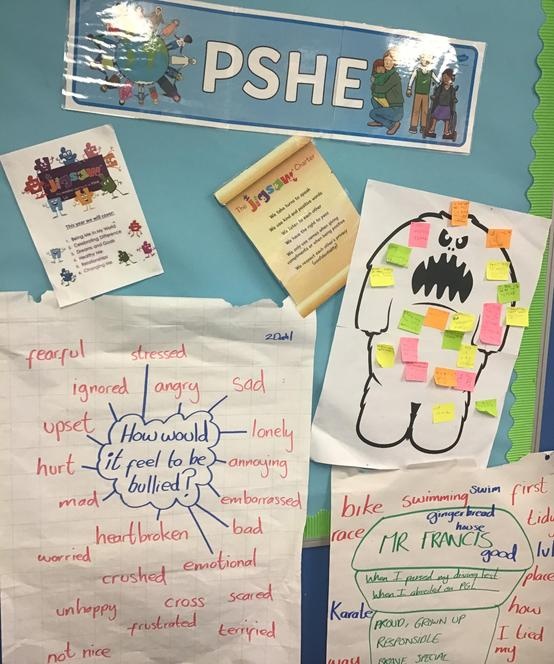 PSHE
Jigsaw
This year we will cover:
1. Being Me in My World
2. Celebrating Difference
3. Dreams and Goals
4. Healthy Me
5. Relationships
6. Changing Me
The Jigsaw Charter
We take turns to speak
We use kind and positive words
We listen to each other
We have the right to pass
We only use names when giving
compliments or when being positive
We respect each other's privacy
(confidentiality)
fearful
stressed
ignored
angry
sad
upset
lonely
How would
it feel to be
bullied?
hurt
annoying
mad
embarrassed
heartbroken
bad
worried
emotional
crushed
unhappy
cross
scared
frustrated
terrified
not nice
bike
swimming
swim
first
gingerbread
house
race
MR FRANCIS
good
When I passed my driving test
When I abseiled on PGL
place
Karate
PROUD, GROWN UP
how
RESPONSIBLE
I tied
my
BRAVE SPECIAL
way